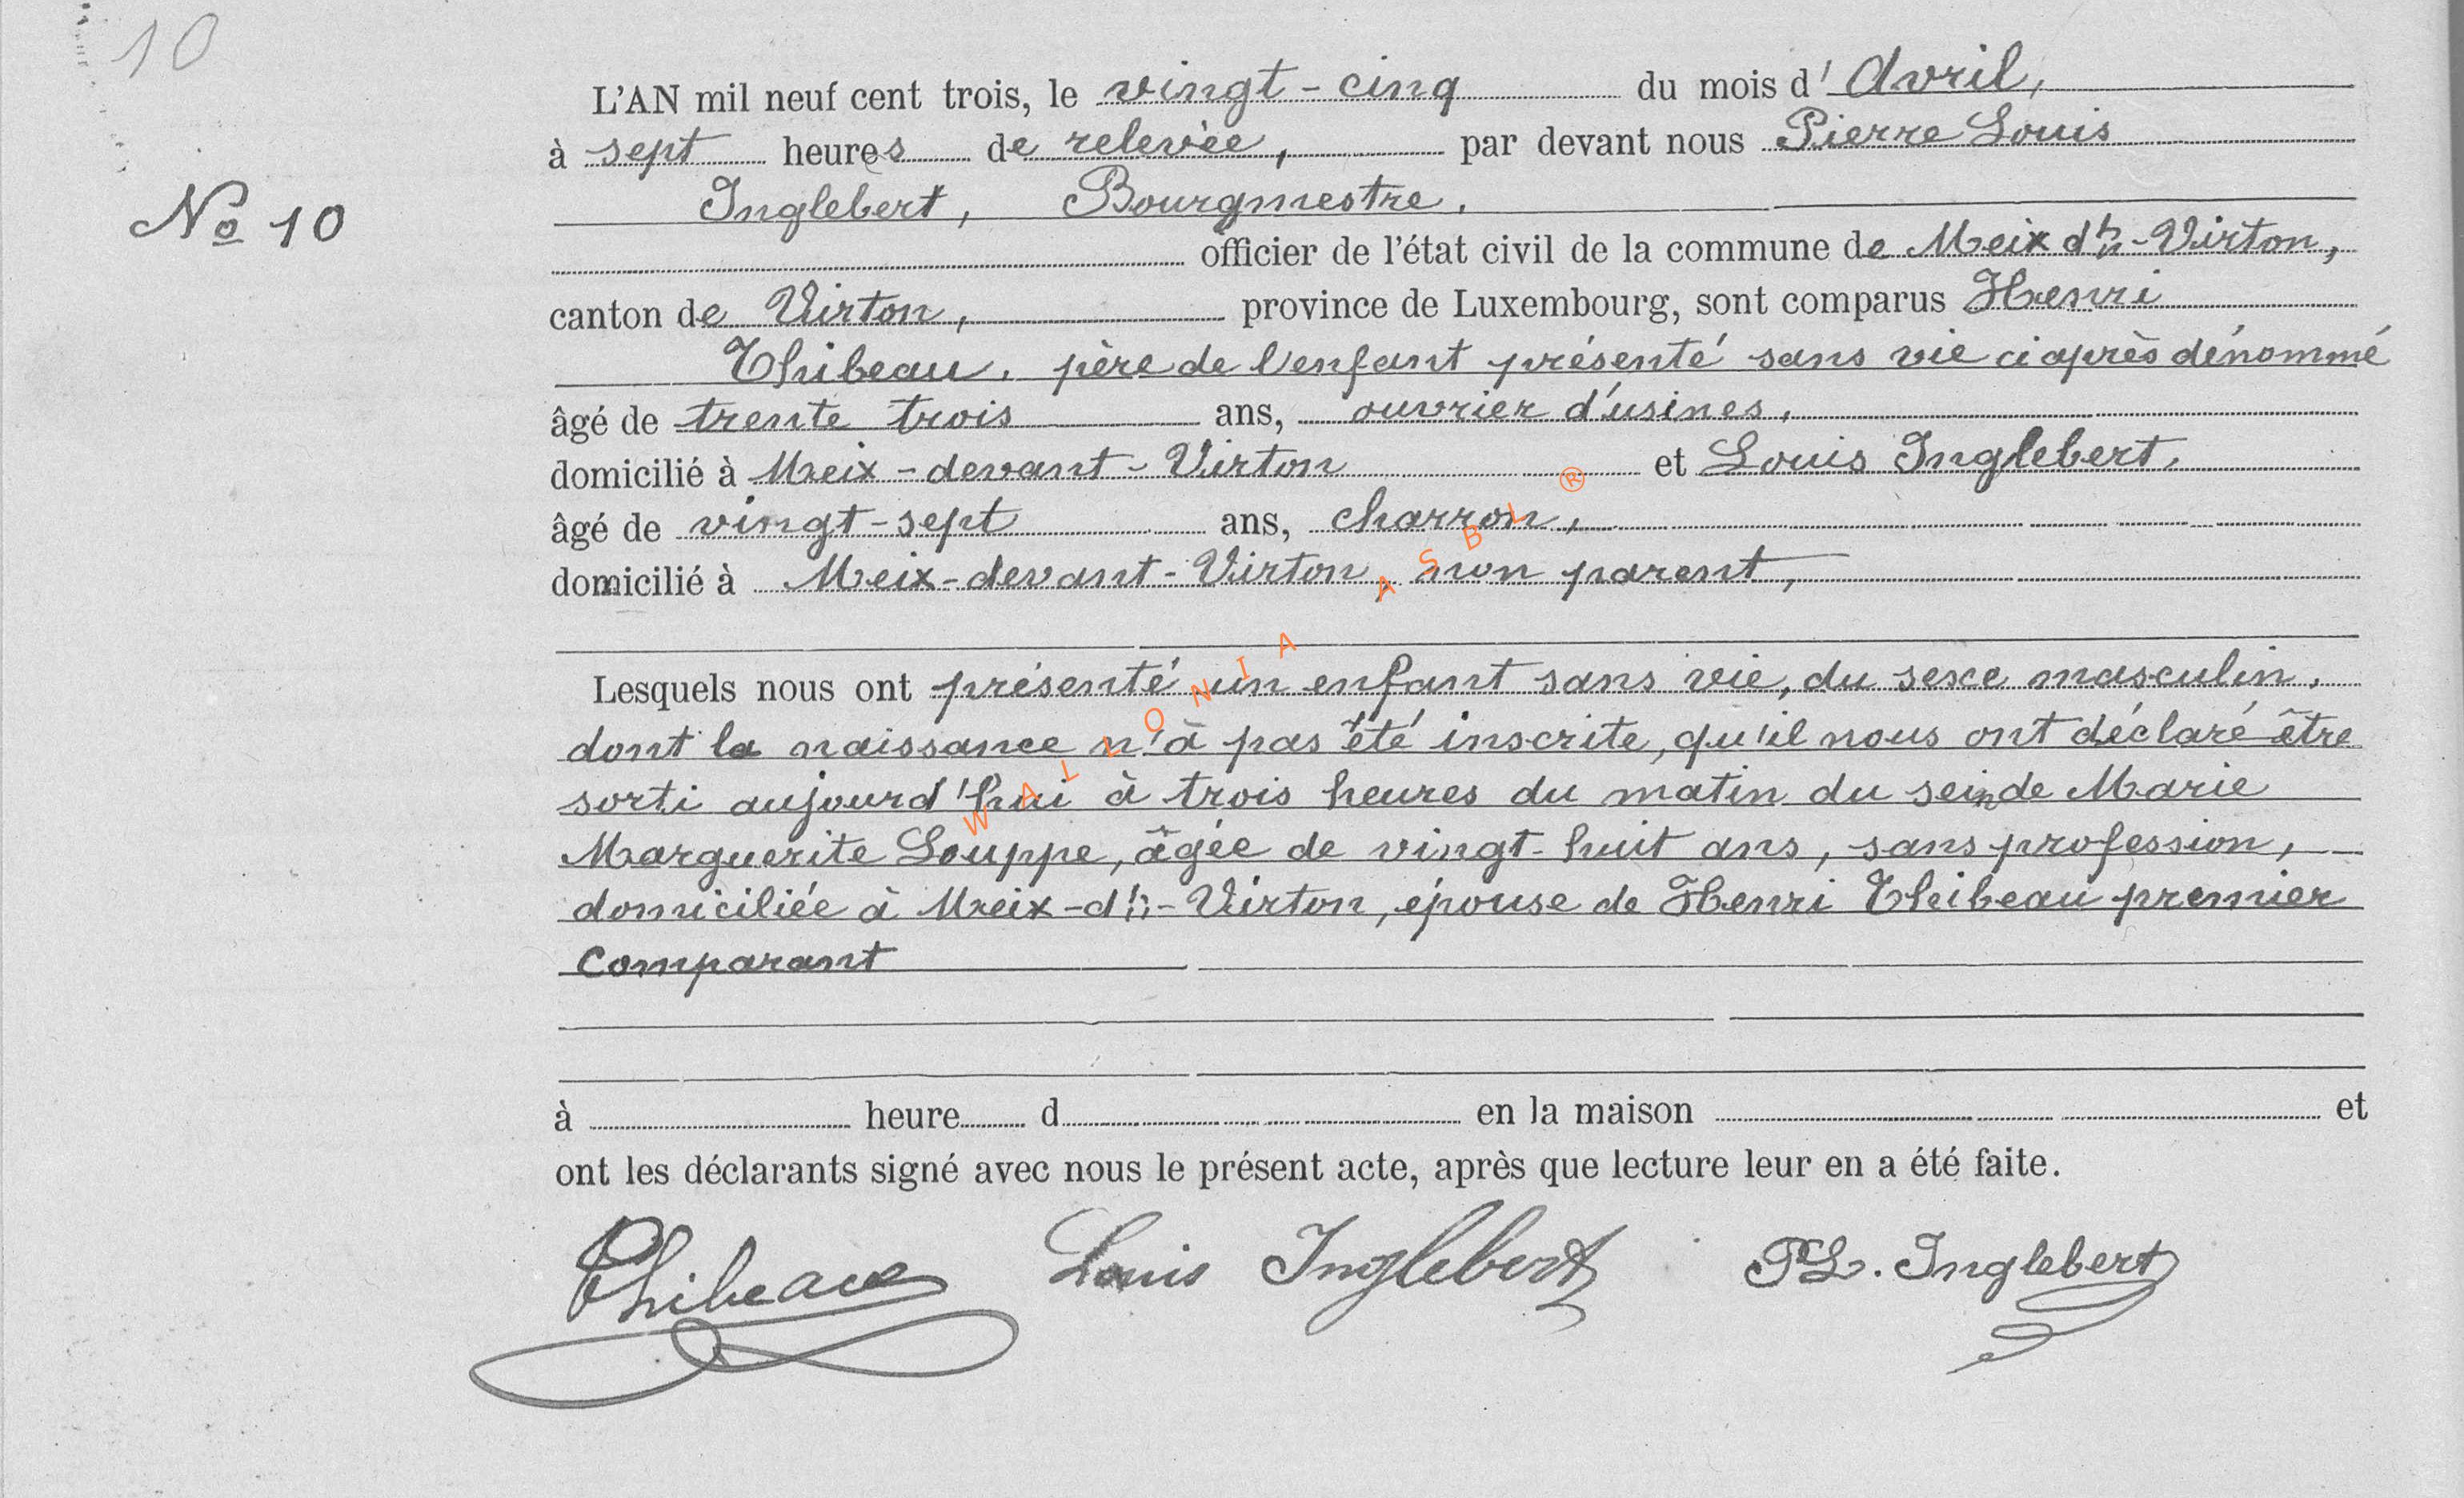 10
L'AN mil neuf cent trois, le vingt-cinq du mois d'Avril,
à sept heures de relevée, par devant nous Pierre Louis
No 10
Inglebert, Bourgmestre.
officier de l'état civil de la commune de Meix dt-Virton,
canton de Virton, province de Luxembourg, sont comparus Henri
Thibeau, père de l'enfant présenté sans vie ci après dénommé
âgé de trente trois ans, ouvrier d'usines,
domicilié à Meix-devant-Virton et Louis Inglebert,
âgé de vingt-sept ans, charron,
domicilié à Meix-devant-Virton, non parent,
Lesquels nous ont présenté un enfant sans vie, du sexe masculin,
dont la naissance n'à pas été inscrite, qu'il nous ont déclaré être
sorti aujourd'hui à trois heures du matin du sein de Marie
Marguerite Louppe, âgée de vingt-huit ans, sans profession,
domiciliée à Meix-dt-Virton, épouse de Henri Thibeau premier
comparant
à heure d en la maison et
ont les déclarants signé avec nous le présent acte, après que lecture leur en a été faite.
Thibeau Louis Inglebert PL. Inglebert
WALLONIA ASBL ®